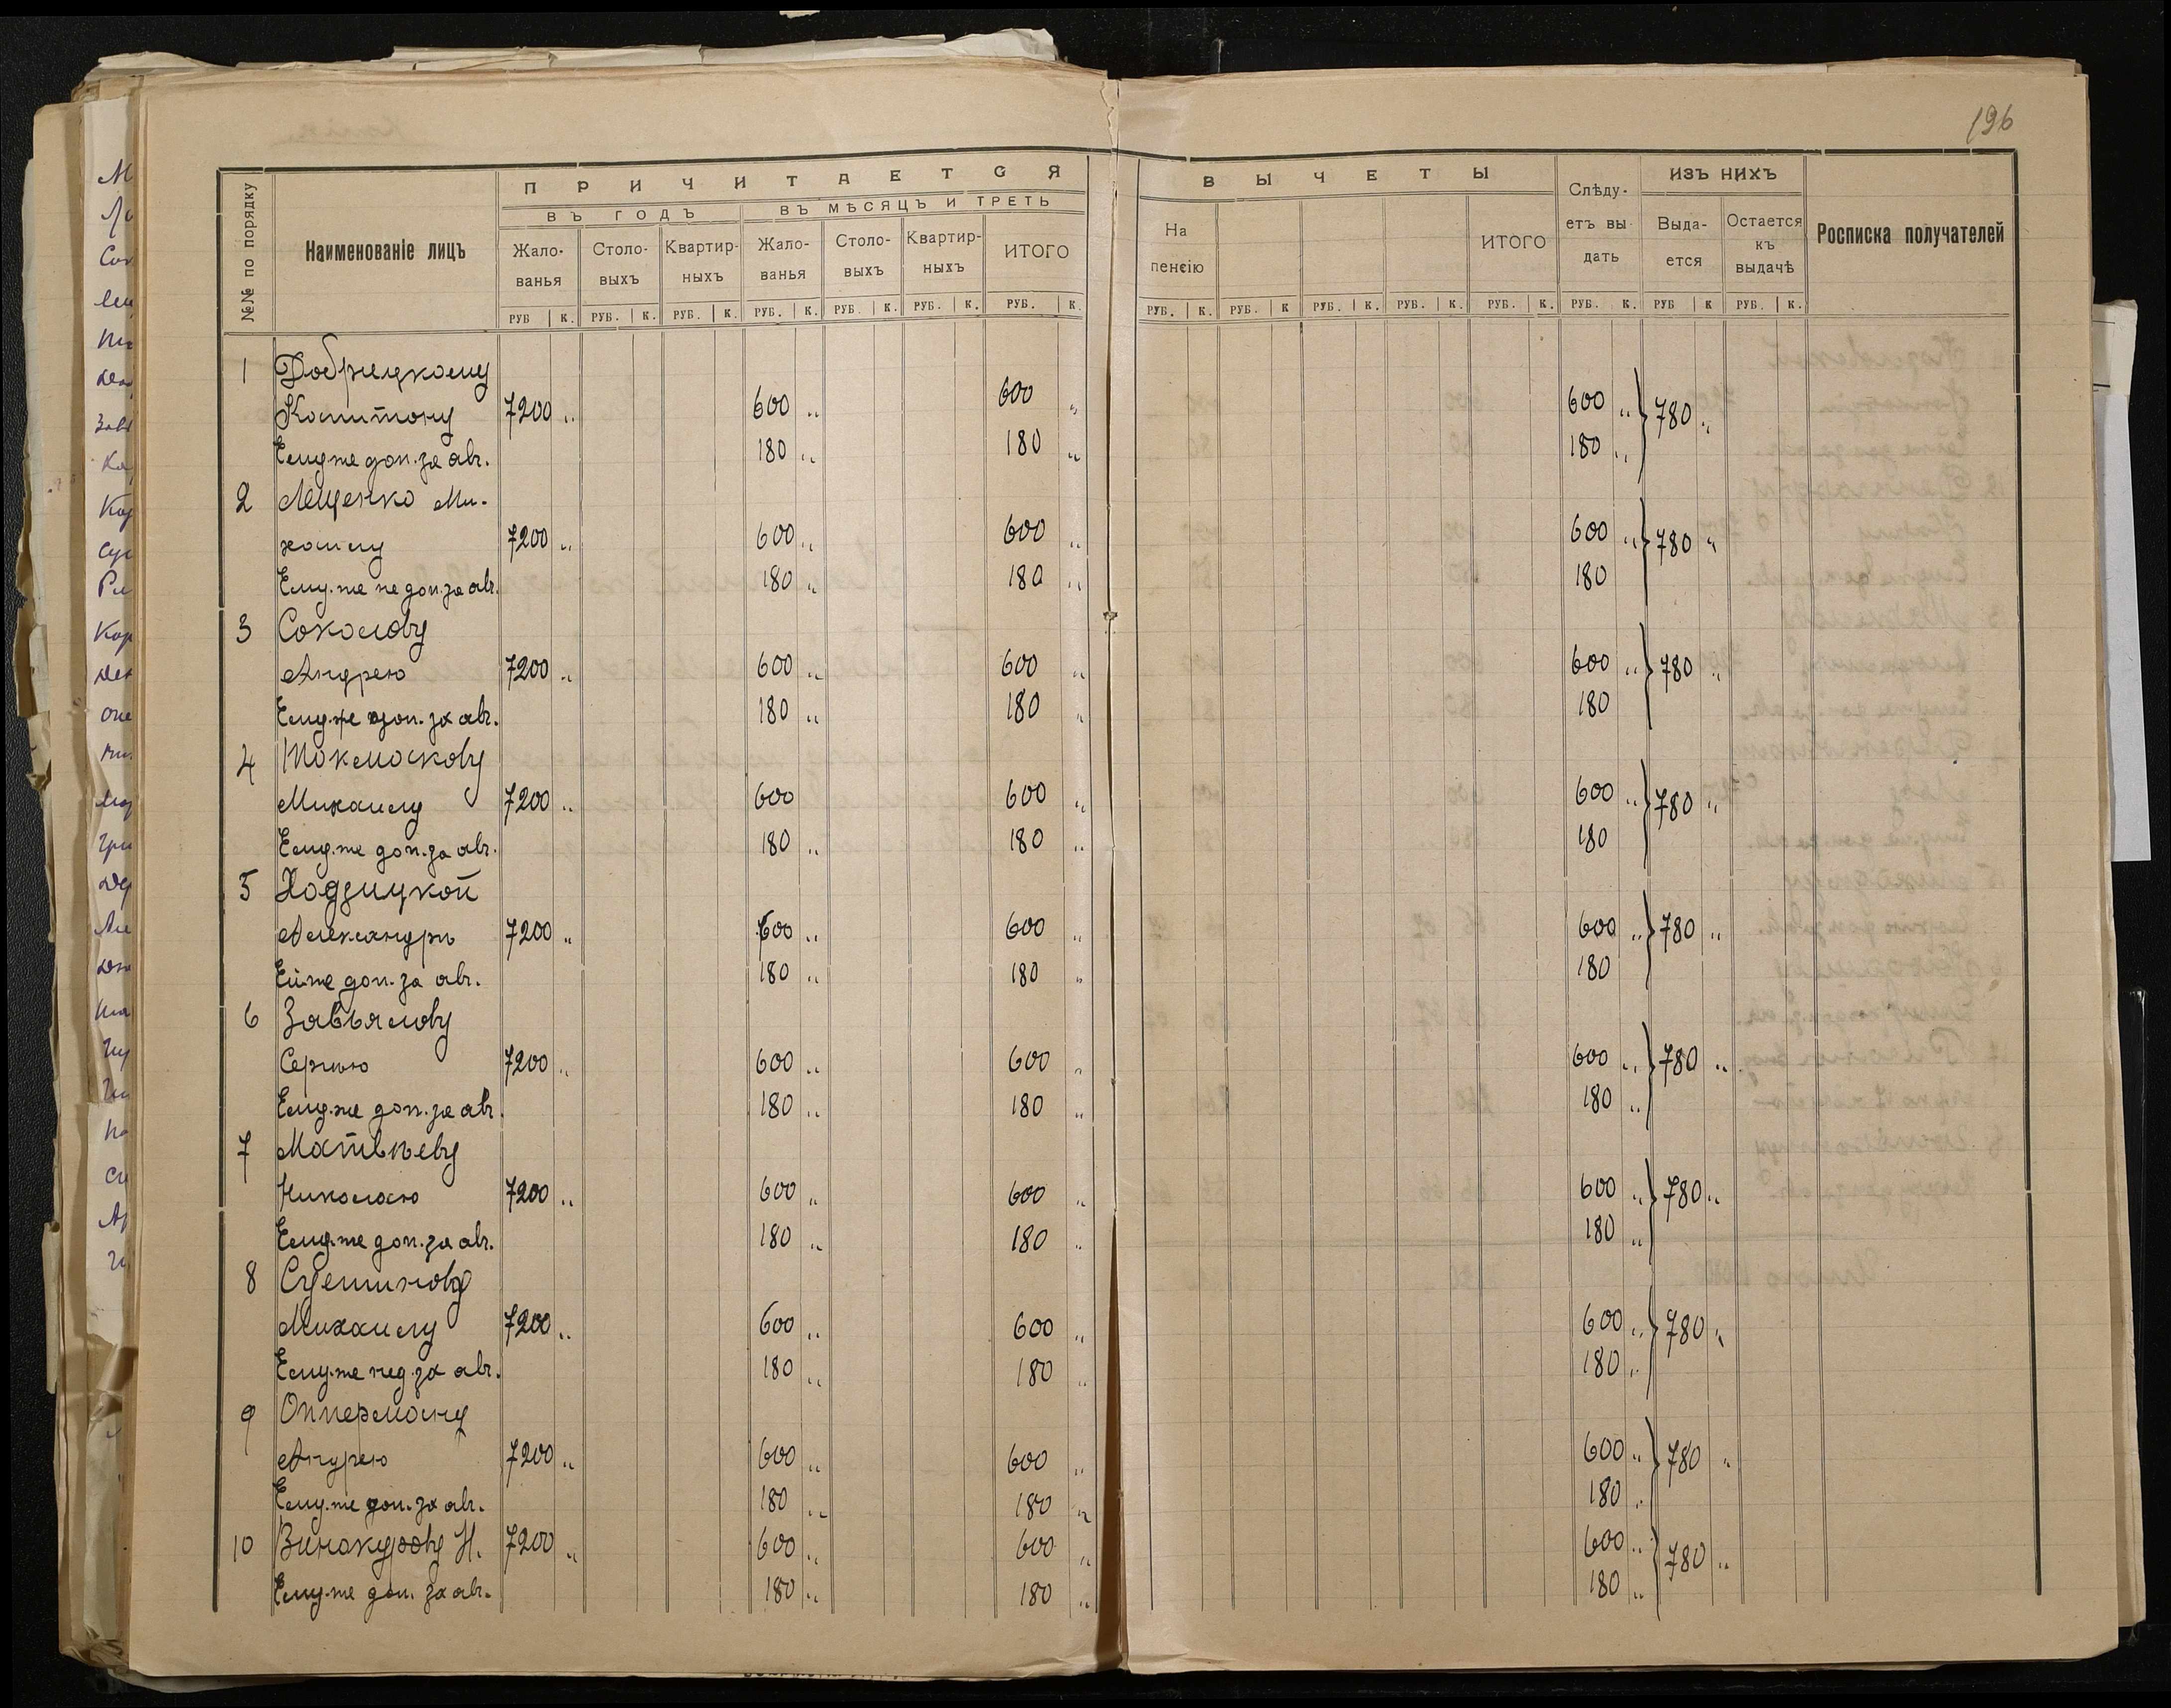 196
№№ по порядку
Наименованіе лицъ
ПРИЧИТАЕТСЯ
ВЪ ГОДЪ
ВЪ МѢСЯЦЪ И ТРЕТЬ
Жало-ванья
Столо-выхъ
Квартир-ныхъ
Жало-ванья
Столо-выхъ
Квартир-ныхъ
ИТОГО
РУБ К. РУБ. К. РУБ. К. РУБ. К. РУБ. К. РУБ. К. РУБ. К.
ВЫЧЕТЫ
На пенсію
ИТОГО
Слѣду-етъ вы-дать
ИЗЪ НИХЪ
Выда-ется
Остается къ выдачѣ
Росписка получателей
РУБ. К. РУБ. К РУБ. К. РУБ. К. РУБ. К. РУБ. К. РУБ К РУБ. К.
1 Добрицкому
Капитону 7200 „ 600 „ 600 „ 600 „ 780 „
Ему же доп. за авг. 180 „ 180 „ 180 „
2 Лещенко Ми-
хаилу 7200 „ 600 „ 600 „ 600 „ 780 „
Ему-же недоп. за авг. 180 „ 180 „ 180
3 Соколову
Андрею 7200 „ 600 „ 600 „ 600 „ 780 „
Ему-же доп. за авг. 180 „ 180 „ 180
4
Михаилу 7200 „ 600 600 „ 600 „ 780 „
Ему-же доп. за авг. 180 „ 180 „ 180
5 Ходзицкой
Александрѣ 7200 „ 600 „ 600 „ 600 „ 780 „
Ей-же доп. за авг. 180 „ 180 „ 180
6 Завьялову
Сергѣю 7200 „ 600 „ 600 „ 600 „ 780 „
Ему-же доп. за авг. 180 „ 180 „ 180 „
7 Матвѣеву
Николаю 7200 „ 600 „ 600 „ 600 „ 780 „
Ему-же доп. за авг. 180 „ 180 „ 180 „
8
Михаилу 7200 „ 600 „ 600 „ 600 „ 780 „
Ему-же нед. за авг. 180 „ 180 „ 180 „
9 Опперману
Андрею 7200 „ 600 „ 600 „ 600 „ 780 „
Ему-же доп. за авг. 180 „ 180 „ 180 „
10 Винокурову Н. 7200 „ 600 „ 600 „ 600 „ 780 „
Ему-же доп. за авг. 180 „ 180 „ 180 „